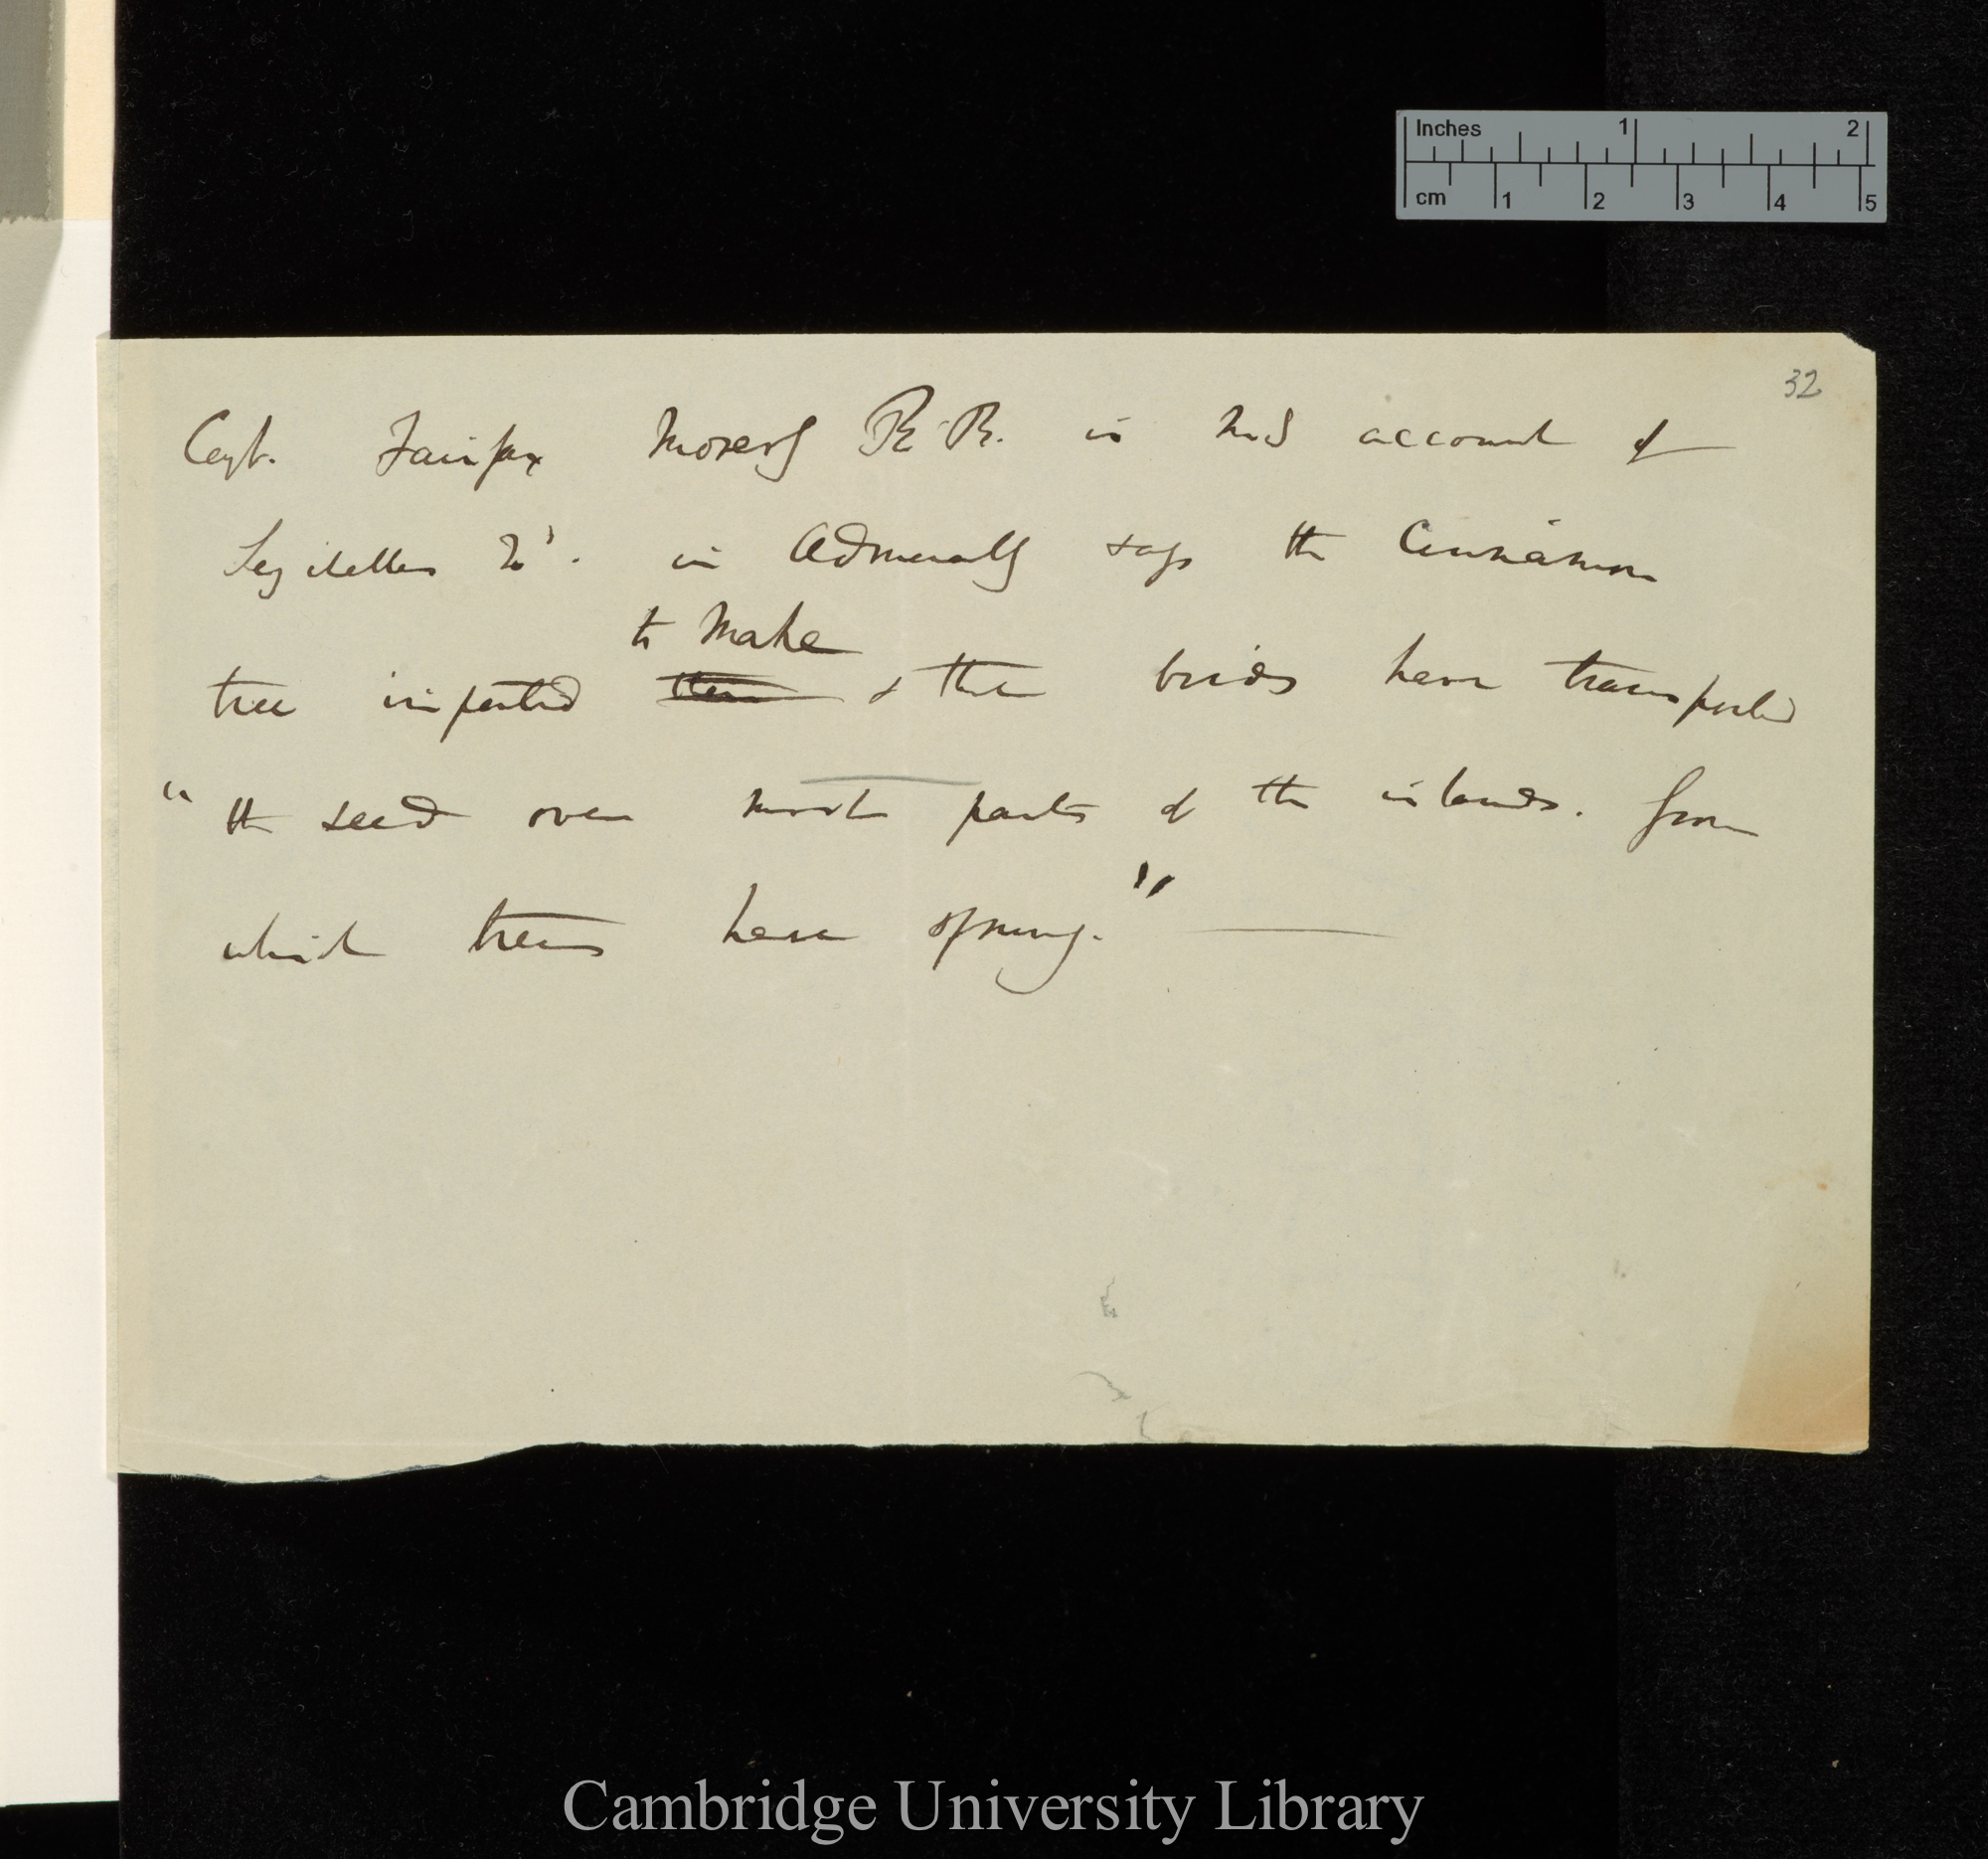 Inches 1 2
cm 1 2 3 4 5
32
Capt. Fairfax Moresby R. N. in MS account of
Seychelles Is. in Admiralty says the Cinnamon
to Mahe
tree imported & there birds have transported
"the seed over most parts of the islands. from
which trees have sprung."
Cambridge University Library